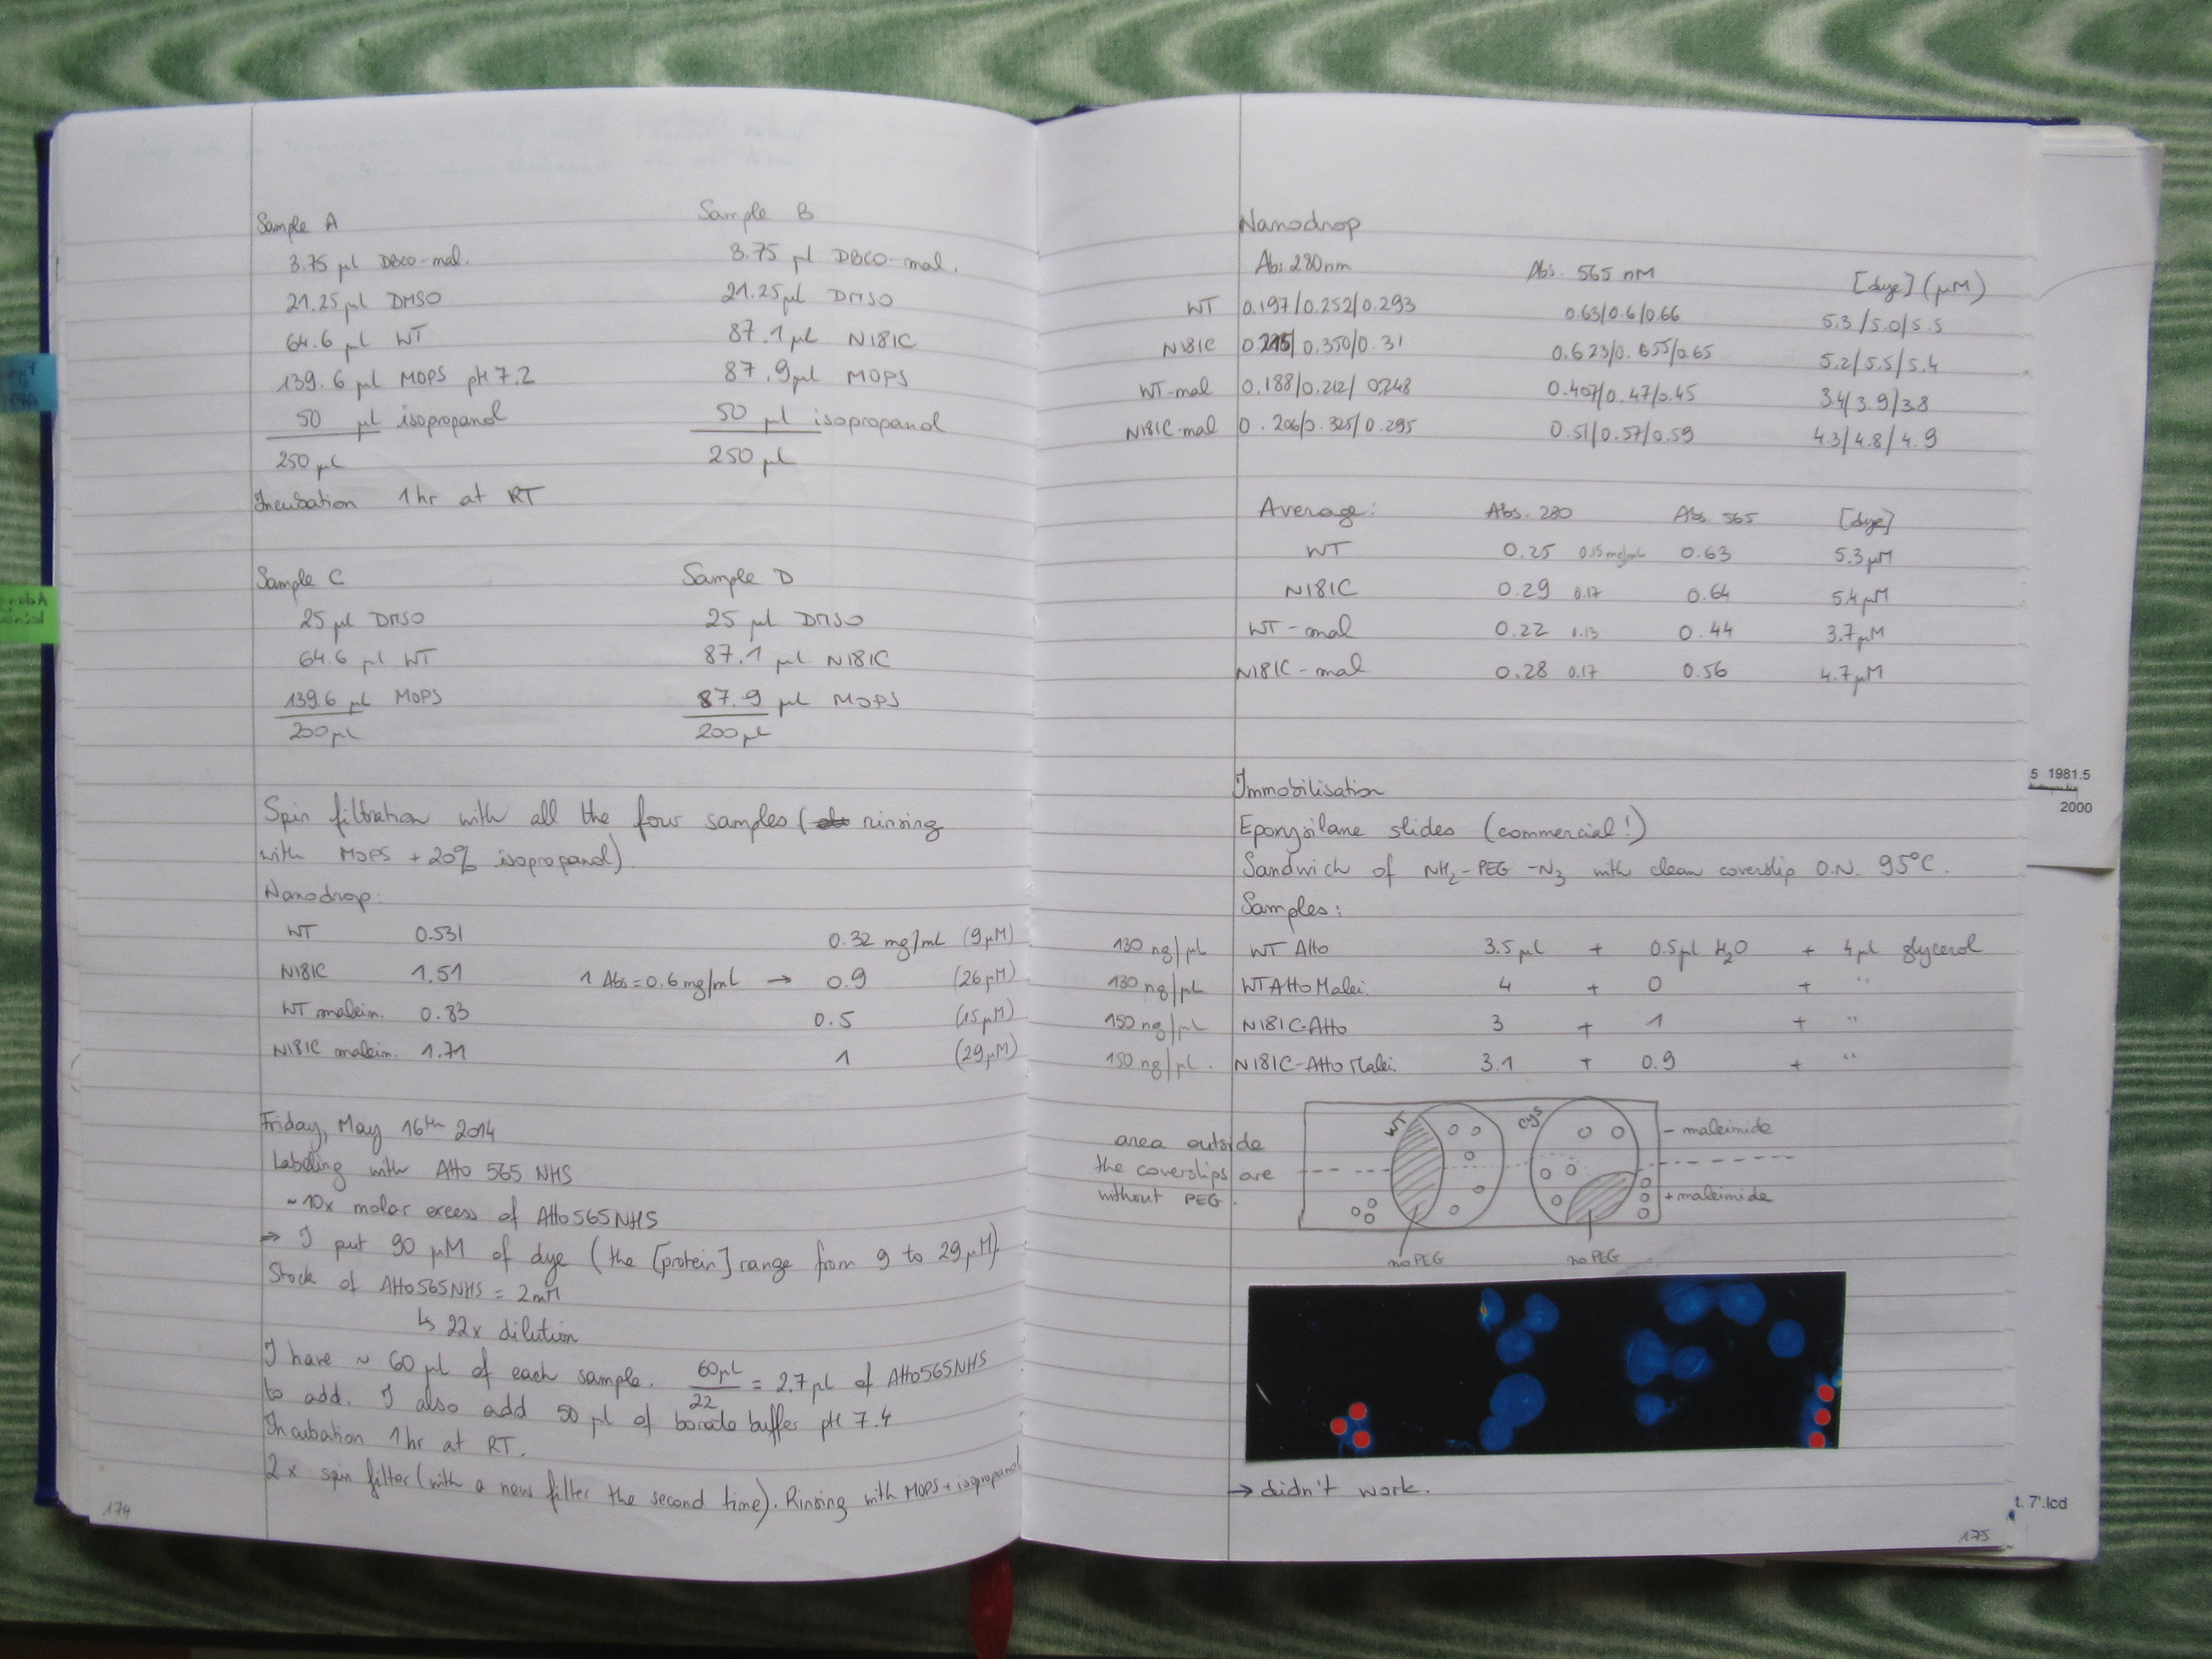 Sample A
3.75 µl DBCO-mal.
21.25 µl DMSO
64.6 µl WT
139.6 µl MOPS pH 7.2
50 µl isopropanol
250 µl
Incubation 1hr at RT
Sample B
3.75 µl DBCO-mal.
21.25 µl DMSO
87.1 µl N181C
87.9 µl MOPS
50 µl isopropanol
250 µl
Sample C
25 µl DMSO
64.6 µl WT
139.6 µl MOPS
200 µl
Sample D
25 µl DMSO
87.1 µl N181C
87.9 µl MOPS
200 µl
Spin filtration with all the four samples ( rinsing
with MOPS + 20% isopropanol)
Nanodrop:
WT 0.531 0.32 mg/mL (9µM)
N181C 1.51 1 Abs = 0.6 mg/mL → 0.9 (26µM)
WT maleim. 0.83 0.5 (15µM)
N181C maleim. 1.71 1 (29µM)
Friday, May 16th 2014
Labeling with Atto 565 NHS
~10x molar excess of Atto565NHS
→ I put 90 µM of dye (the [protein] range from 9 to 29µM)
Stock of Atto565NHS = 2mM
↳ 22x dilution
I have ~ 60 µl of each sample. 60µl/22 = 2.7µl of Atto565NHS
to add. I also add 50 µl of borate buffer pH 7.4
Incubation 1hr at RT.
2x spin filter (with a new filter the second time). Rinsing with MOPS + isopropanol
174
Nanodrop
Abs 280nm Abs. 565 nM [dye] (µM)
WT 0.197/0.252/0.293 0.63/0.6/0.66 5.3/5.0/5.5
N181C 0.215/0.350/0.31 0.623/0.655/0.65 5.2/5.5/5.4
WT-mal 0.188/0.212/0.248 0.407/0.47/0.45 3.4/3.9/3.8
N181C-mal 0.206/0.325/0.295 0.51/0.57/0.59 4.3/4.8/4.9
Average: Abs. 280 Abs. 565 [dye]
WT 0.25 0.15mg/mL 0.63 5.3µM
N181C 0.29 0.17 0.64 5.4µM
WT-mal 0.22 0.13 0.44 3.7µM
N181C-mal 0.28 0.17 0.56 4.7µM
Immobilisation
Epoxysilane slides (commercial!)
Sandwich of NH2-PEG-N3 with clean coverslip O.N. 95°C.
Samples:
130 ng/µl WT Atto 3.5µl + 0.5µl H2O + 4µl glycerol
130 ng/µl WT Atto Malei. 4 + 0 + "
150 ng/µl N181C-Atto 3 + 1 + "
150 ng/µl. N181C-Atto Malei. 3.1 + 0.9 + "
area outside
the coverslips are
without PEG.
WT
Cys
- maleimide
+ maleimide
no PEG
no PEG
→ didn't work.
175
5 1981.5
2000
t. 7'.lcd